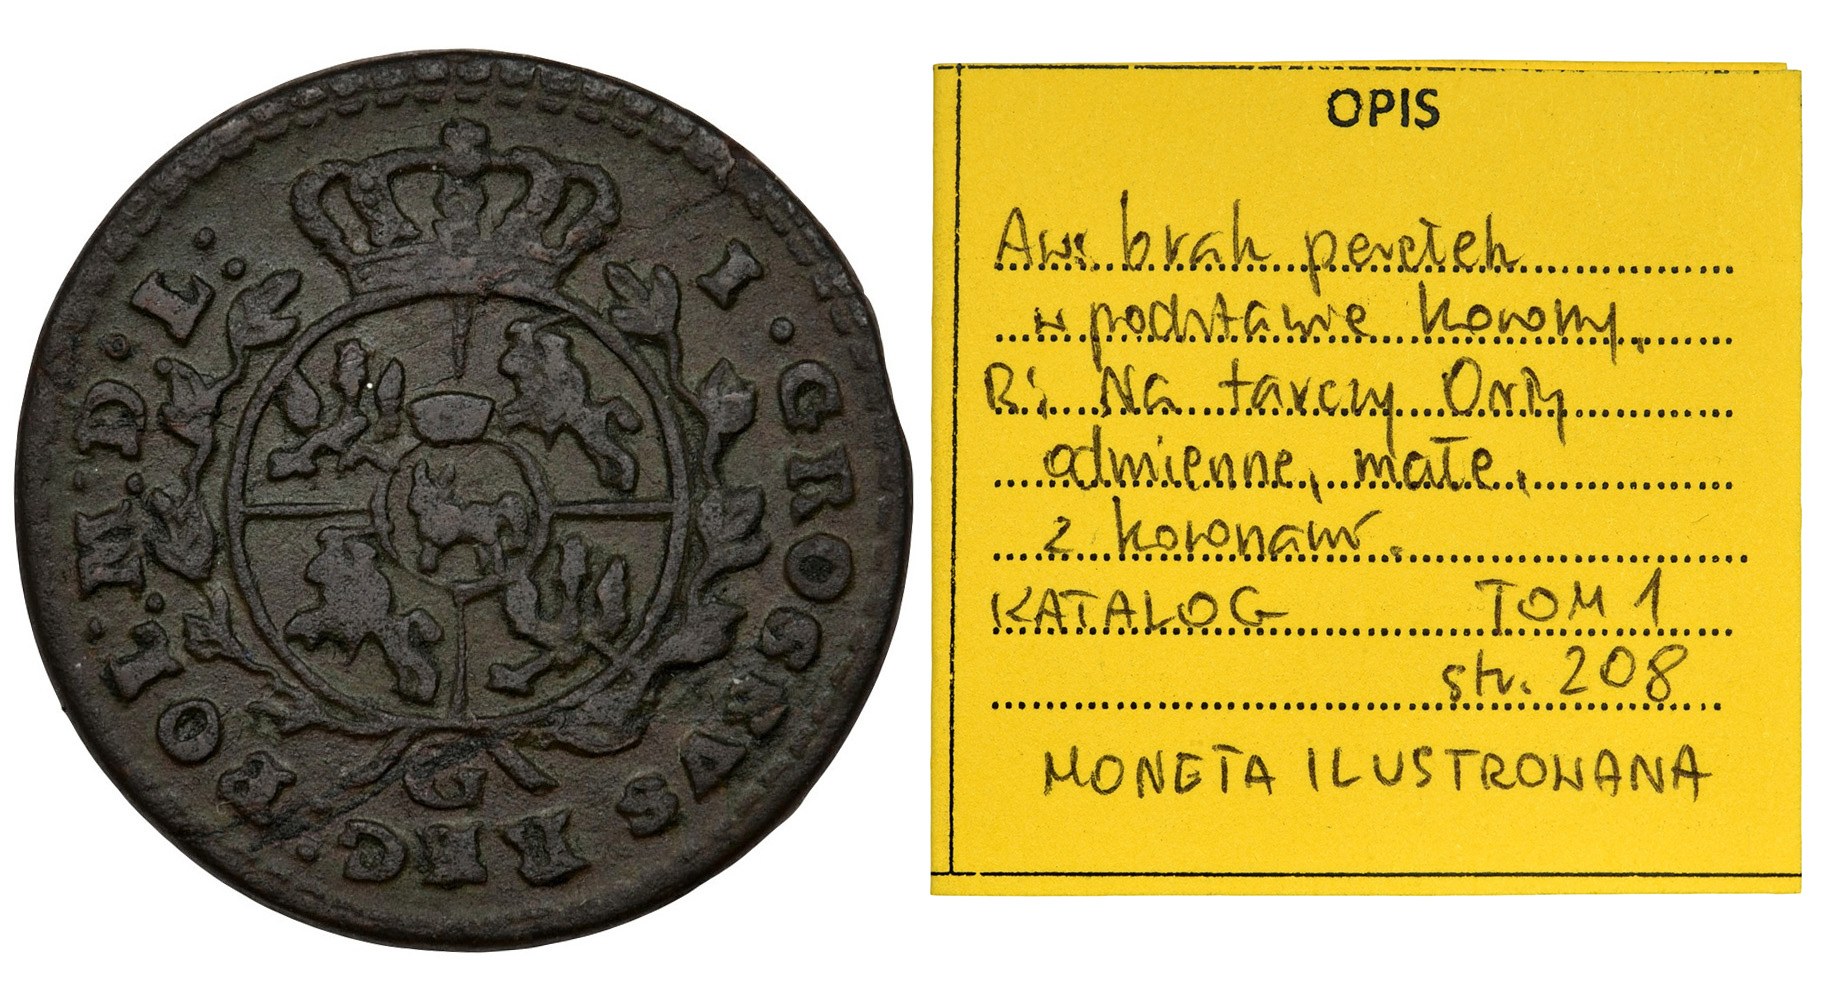 I · GROSSVS REG · POL · M · D · L ·
G
OPIS
Aw: brak perełek
w podstawie korony.
Rs Na tarczy Orły
odmienne, małe,
z koronami.
KATALOG TOM 1
str. 208
MONETA ILUSTROWANA